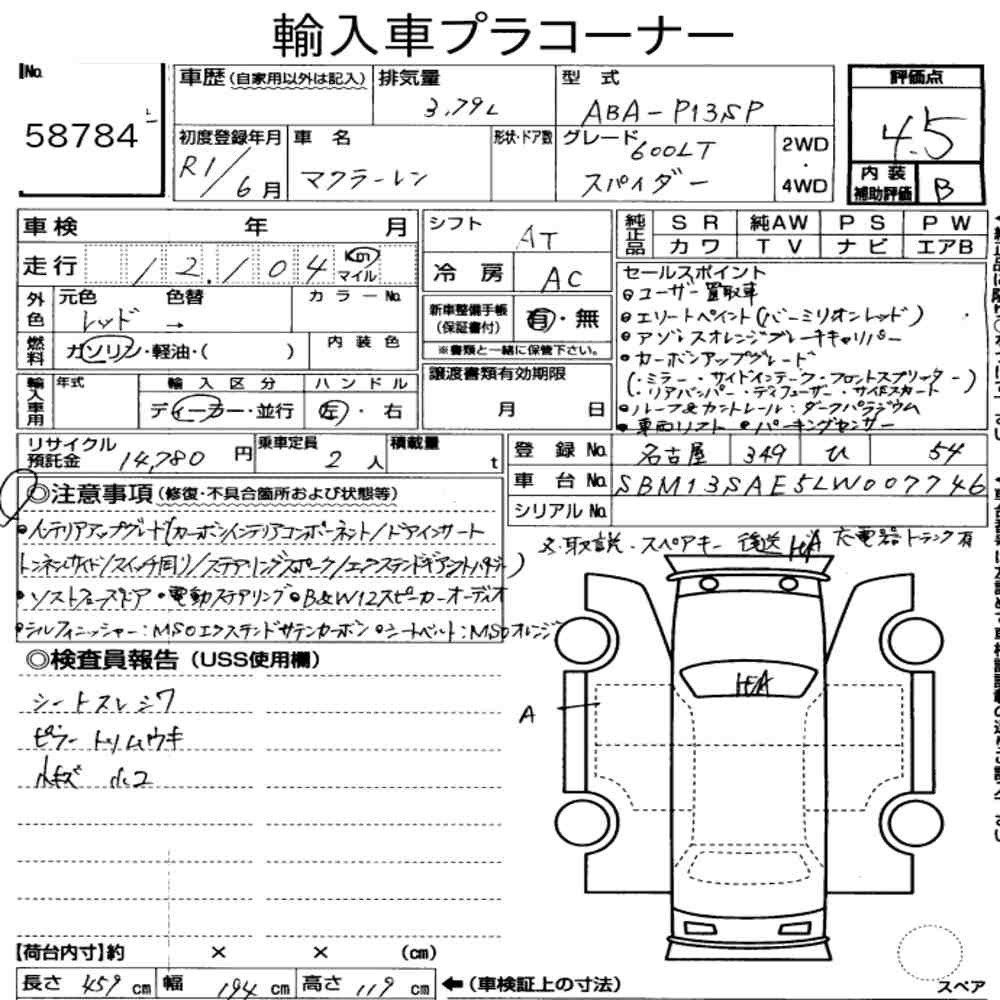 輸入車プラコーナー
No.
58784
車歴 (自家用以外は記入)
排気量
3.79L
型 式
ABA-P13SP
評価点
4.5
初度登録年月
R1/6月
車 名
マクラーレン
形状・ドア数
グレード
600LT
スパイダー
2WD
・
4WD
内装
補助評価
B
車検 年 月
走行 12,104 Km マイル
外色
元色 色替 カラーNo.
レッド →
燃料
ガソリン・軽油・( )
内装色
輸入車用
年式
輸入区分
ディーラー・並行
ハンドル
左・右
シフト
AT
冷房
AC
新車整備手帳
(保証書付)
有・無
※書類と一緒に保管下さい。
譲渡書類有効期限
月 日
純正品
SR 純AW PS PW
カワ TV ナビ エアB
セールスポイント
ユーザー買取車
エリートペイント(バーミリオンレッド)
アゾレスオレンジブレーキキャリパー
カーボンアップグレード
(・ミラー・サイドインテーク・フロントスプリッター)
(・リアバンパー・ディフューザー・サイドスカート)
ルーフ&カントレール:ダークパラジウム
車両リフト パーキングセンサー
リサイクル
預託金
14,780円
乗車定員
2人
積載量
t
登録No.
名古屋 349 ひ 54
車台No.
SBM13SAE5LW007746
シリアルNo.
◎注意事項(修復・不具合箇所および状態等)
インテリアアップグレード(カーボンインテリアコンポーネント/ドアインサート
トンネルサイド/スイッチ周り/ステアリングスポーク/エクステンドギアシフトパドル)
ソフトクローズドア ・電動ステアリング B&W12スピーカーオーディオ
シルフィニッシャー:MSOエクステンドサテンカーボン シートベルト:MSOオレンジ
取説・スペアキー 後送 充電器トランク有
◎検査員報告(USS使用欄)
シートスレシワ
ピラートリムウキ
小キズ 小凹
A
【荷台内寸】約 × × (cm)
長さ 459 cm 幅 194 cm 高さ 119 cm
←(車検証上の寸法)
スペア